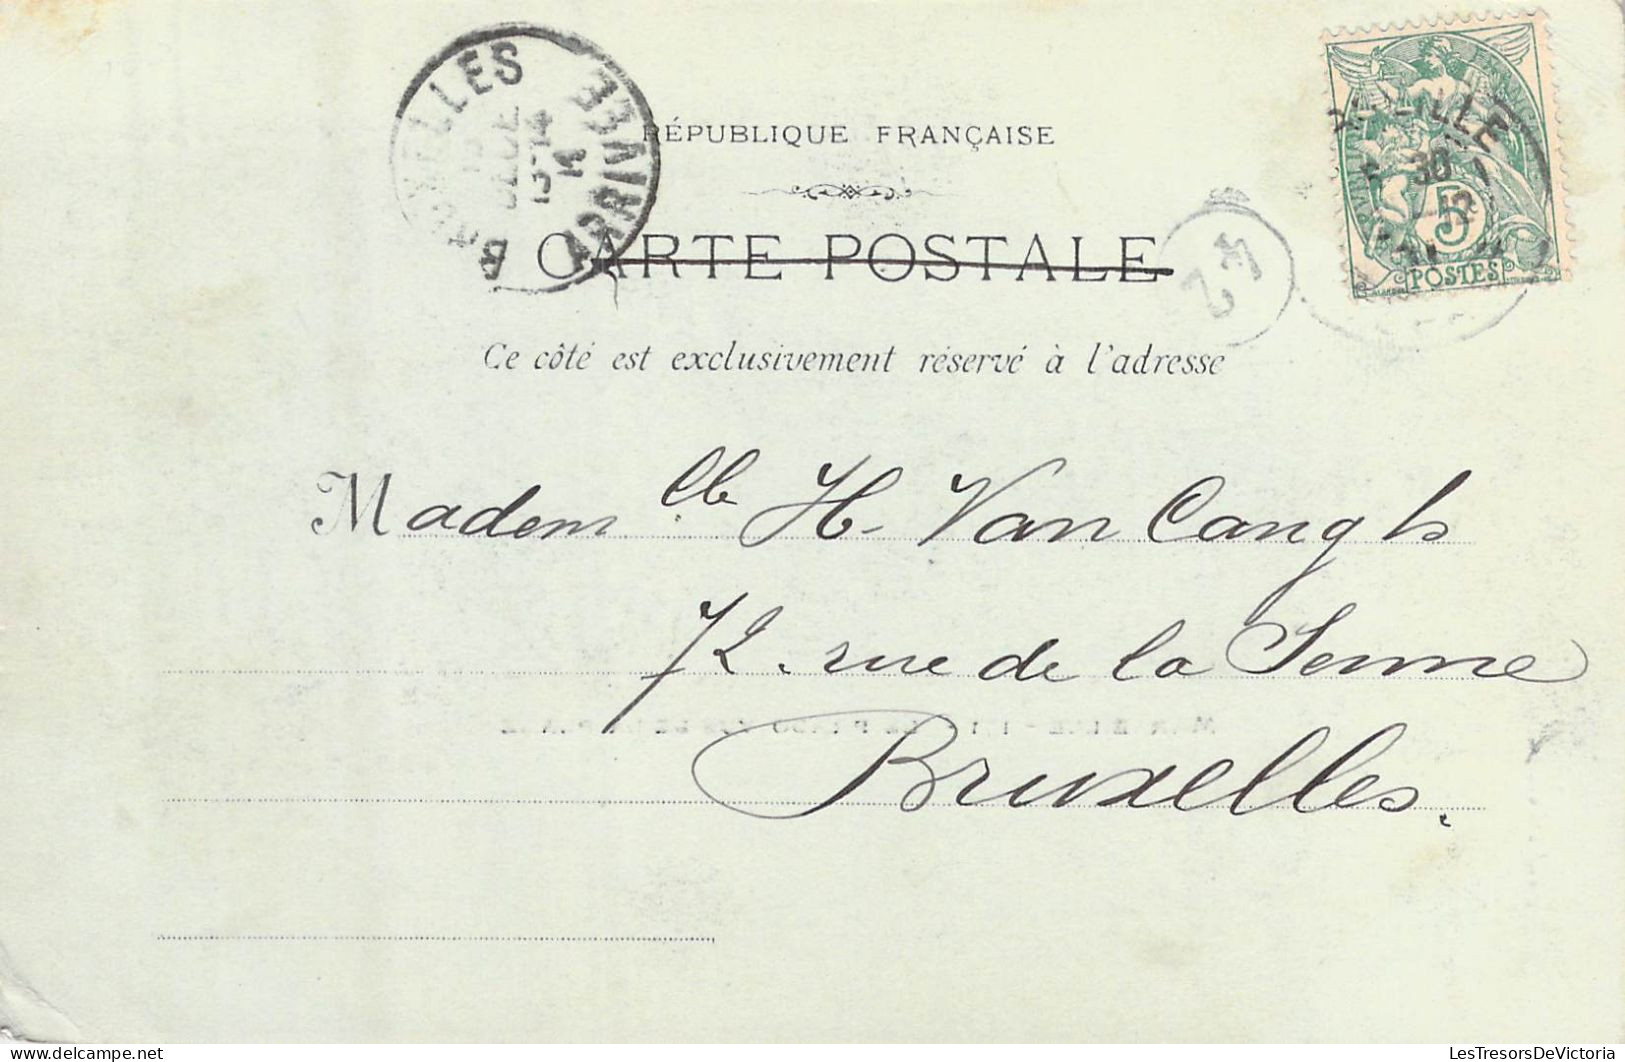 BRUXELLES
ARRIVEE
13-14
RÉPUBLIQUE FRANÇAISE
CARTE POSTALE
Ce côté est exclusivement réservé à l'adresse
30
5
POSTES
Madem lle H. Van Cangh
72. rue de la Senne
Bruxelles.
LesTresorsDeVictoria